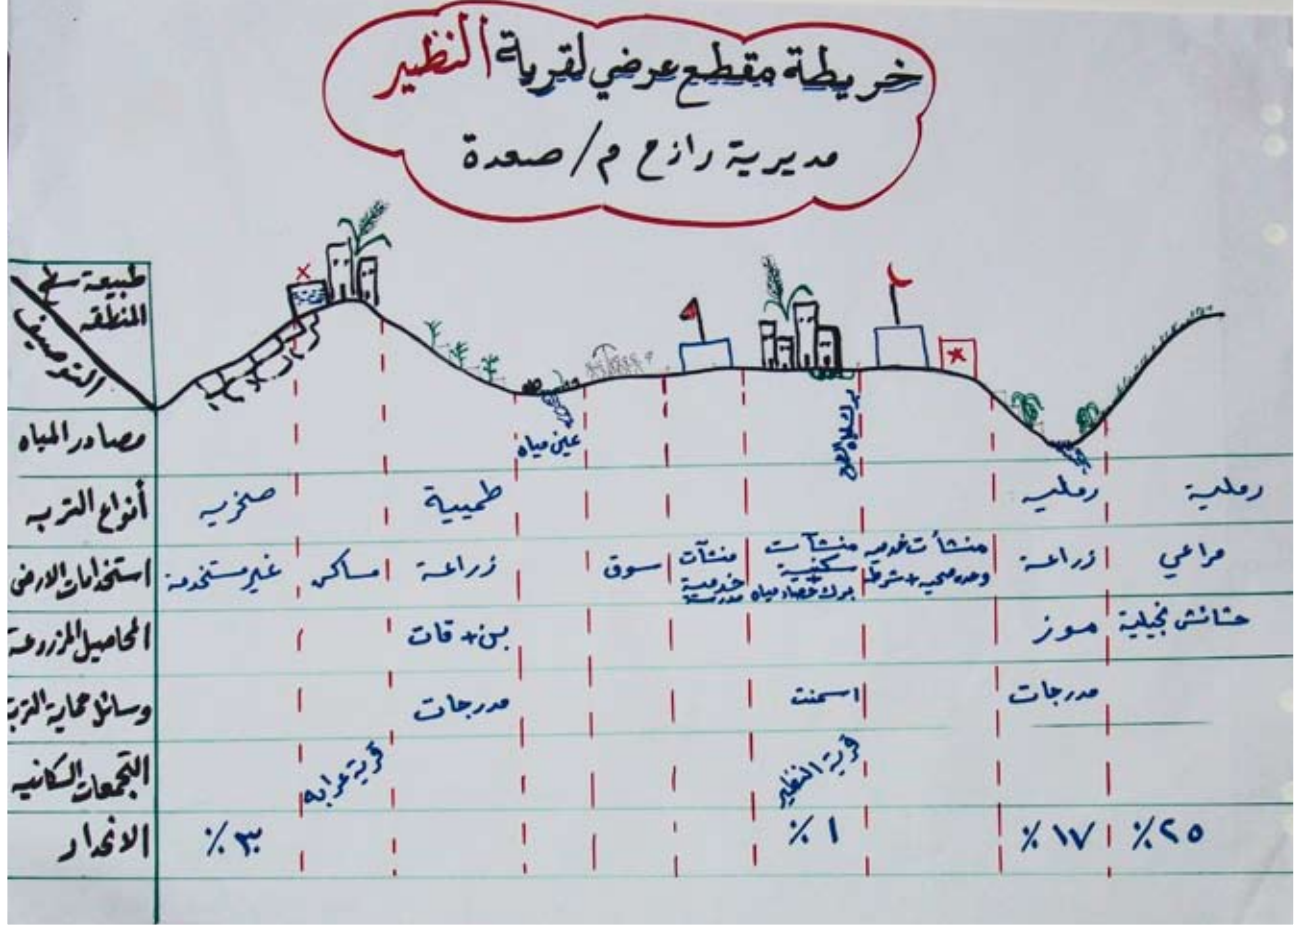 خريطة مقطع عرضي لقرية النظير
مديرية رازح م/ صعدة
طبيعة سطح
المنطقة
التوصيف
مصادر المياه
عين مياه
أنواع التربه
صخريه
طميية
رمليه
رملية
استخدامات الارض
غير مستخدمة
مساكن
زراعة
سوق
منشآت
خدمية
مدرسة
منشآت
سكنية
+
برك حصاد مياه
منشأت خدميه
وحده صحيه + شرطه
زراعة
مراعي
المحاصيل المزروعة
بن + قات
موز
حشائش نجيلية
وسائل حماية التربة
مدرجات
اسمنت
مدرجات
التجمعات السكانيه
قرية عرابه
قرية النظير
الانحدار
٣٠٪
١٪
١٧٪
٢٥٪